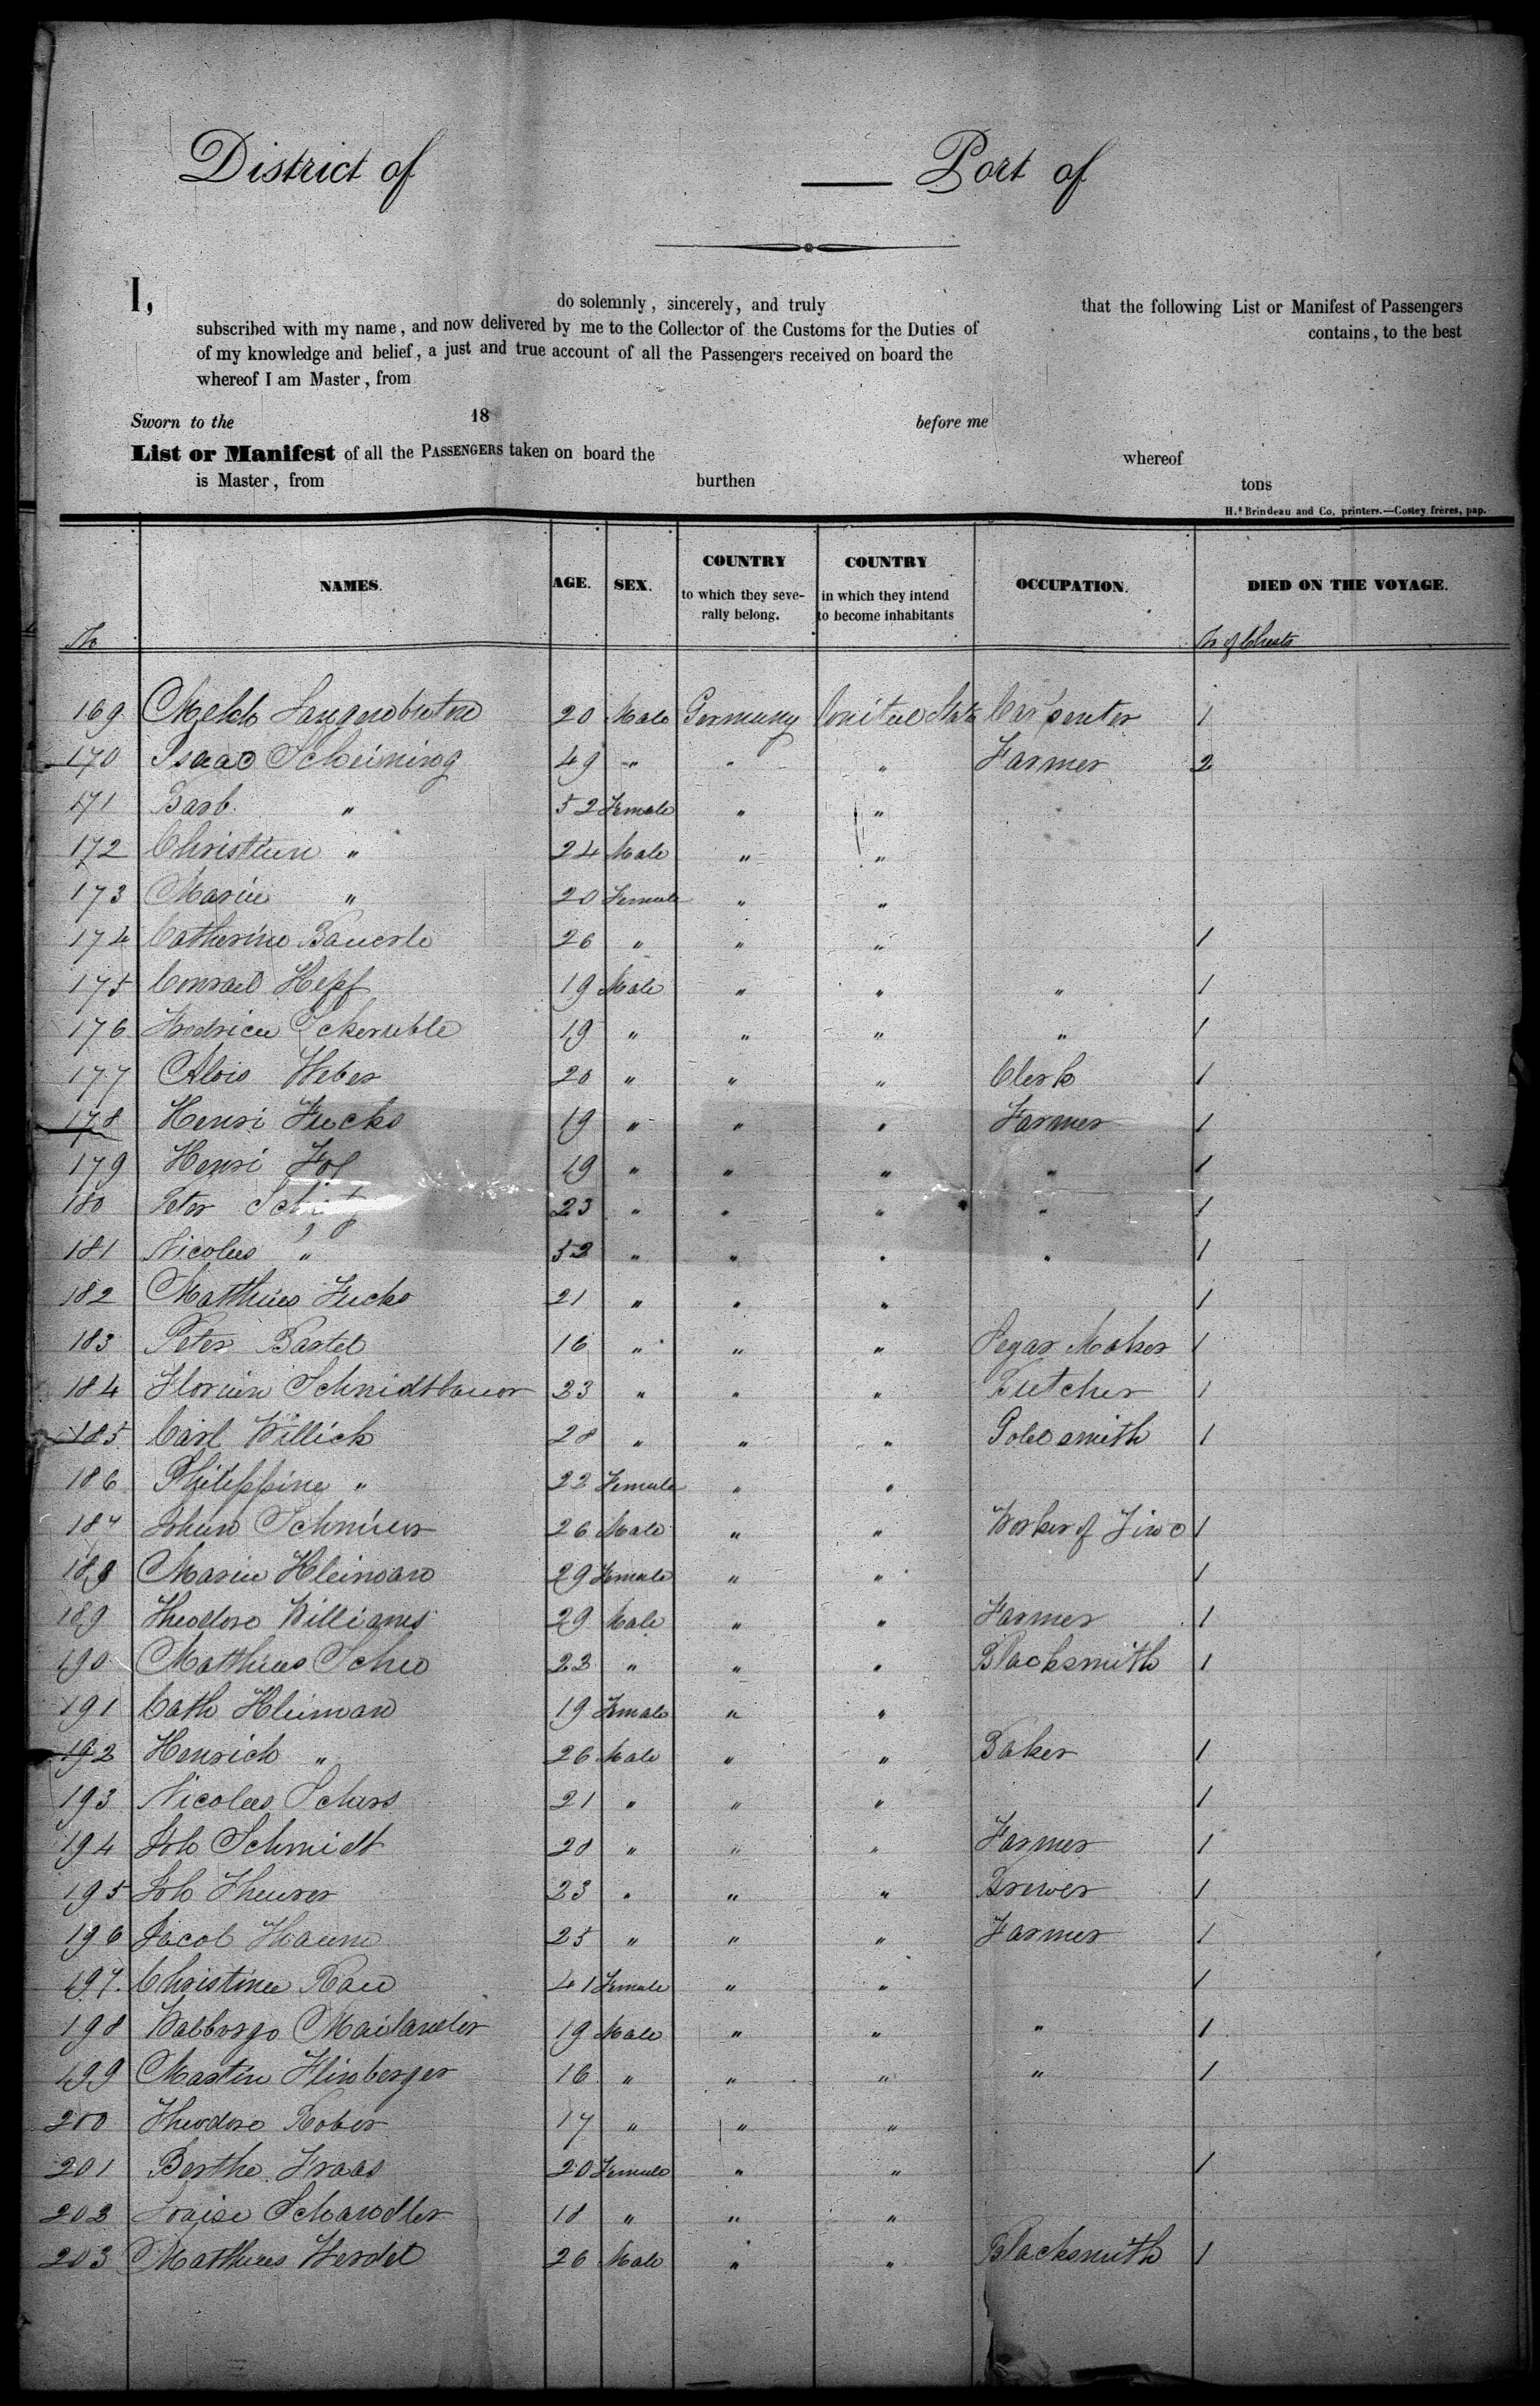 District of — Port of
I, do solemnly, sincerely, and truly that the following List or Manifest of Passengers
subscribed with my name, and now delivered by me to the Collector of the Customs for the Duties of contains, to the best
of my knowledge and belief, a just and true account of all the Passengers received on board the
whereof I am Master, from
Sworn to the 18 before me
List or Manifest of all the PASSENGERS taken on board the whereof
is Master, from burthen tons
H.s Brindeau and Co, printers.—Costey frères, pap.
NAMES. AGE. SEX. COUNTRY to which they severally belong. COUNTRY in which they intend to become inhabitants OCCUPATION. DIED ON THE VOYAGE.
No No of Chests
169 Melch 20 Male Germany United State Carpenter 1
170 Isaac Scheining 49 " " " Farmer 2
171 Barb. " 52 Female " "
172 Christian " 24 Male " "
173 Maria " 20 Female " "
174 Catherine Bauerle 26 " " " 1
175 Conrad Hepf 19 Male " " " 1
176 19 " " " " 1
177 Alois Weber 20 " " " Clerk 1
178 Henri Fucks 19 " " " Farmer 1
179 Henri 19 " " " " 1
180 Peter 23 " " " " 1
181 Nicolas " 52 " " " " 1
182 Matthias Fucks 21 " " " 1
183 Peter Bastel 16 " " " Segar Maker 1
184 Florian Schmidtbauer 23 " " " Butcher 1
185 Carl Willich 28 " " " Goldsmith 1
186 Philippine " 22 Female " "
187 Johan 26 Male " " Worker of Zinc 1
188 Maria Kleiman 29 Female " " 1
189 Theodore Williams 29 Male " " Farmer 1
190 Matthias 22 " " " Blacksmith 1
191 Cath Kleiman 19 Female " "
192 Henrich " 26 Male " " Baker 1
193 Nicolas 21 " " " 1
194 Joh Schmidt 28 " " " Farmer 1
195 Joh Theurer 23 " " " Brewer 1
196 Jacob 25 " " " Farmer 1
197 Christina Rau 41 Female " " 1
198 Walborgo Mailander 19 Male " " " 1
199 Martin Flinberger 16 " " " " 1
200 Theodore Rober 17 " " "
201 Berthe Fraas 20 Female " " 1
202 Louise Schandler 18 " " "
203 Mathias Werdel 26 Male " " Blacksmith 1